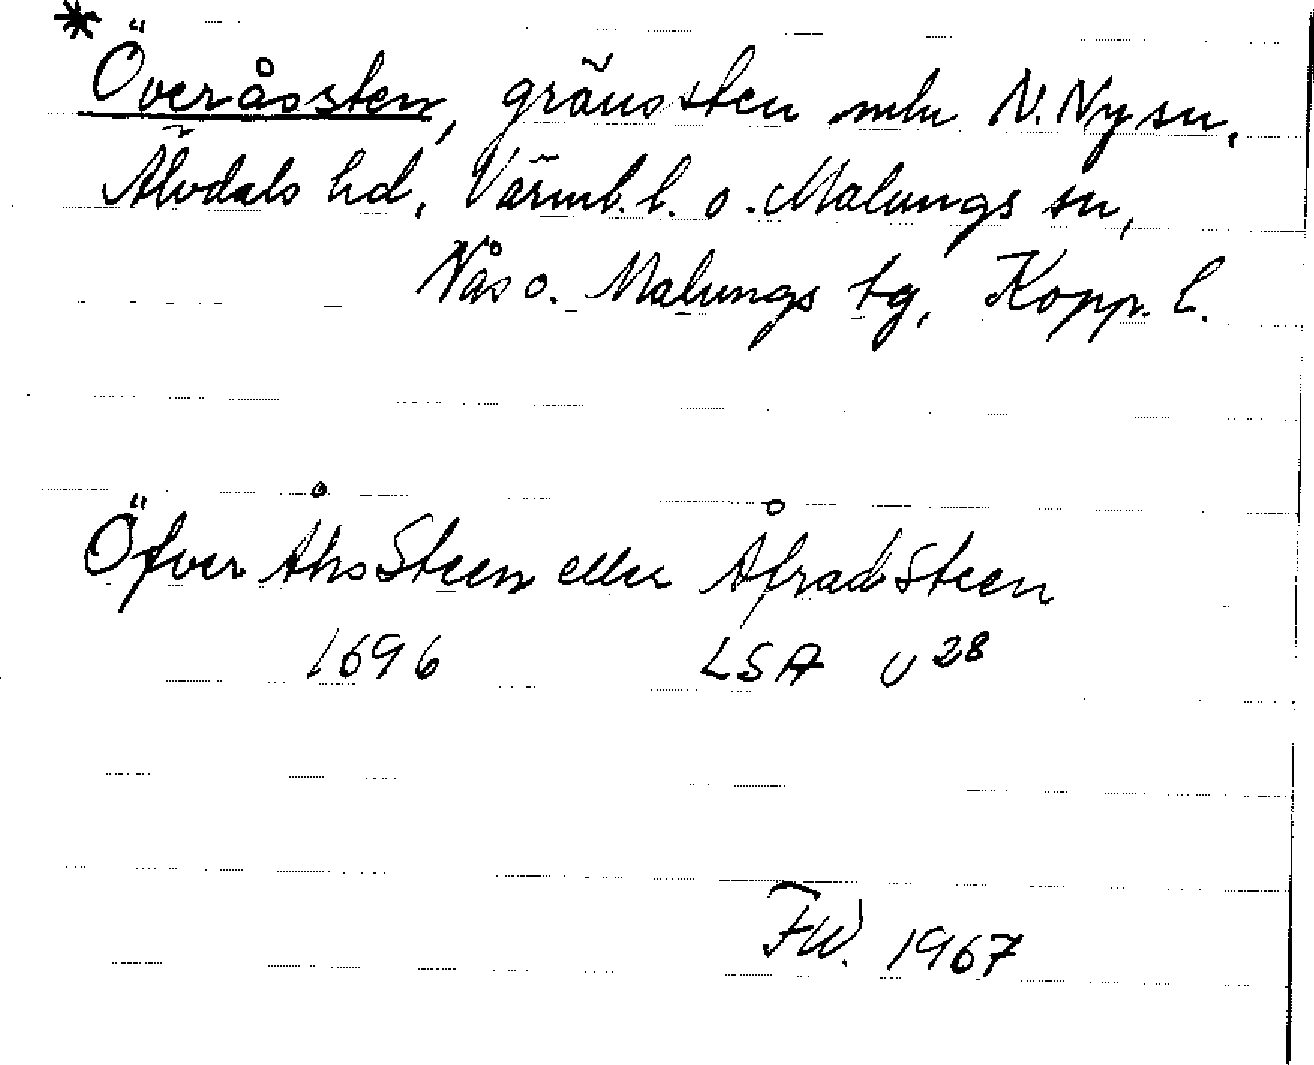 * Överåssten, gränssten mln N. Ny sn,
Älvdals hd, Värml. l. o. Malungs sn,
Nås o. Malungs tg, Kopp. l.
Öfver Åhs Steen eller Åfrad Steen
1696 LSA U 28
FW. 1967